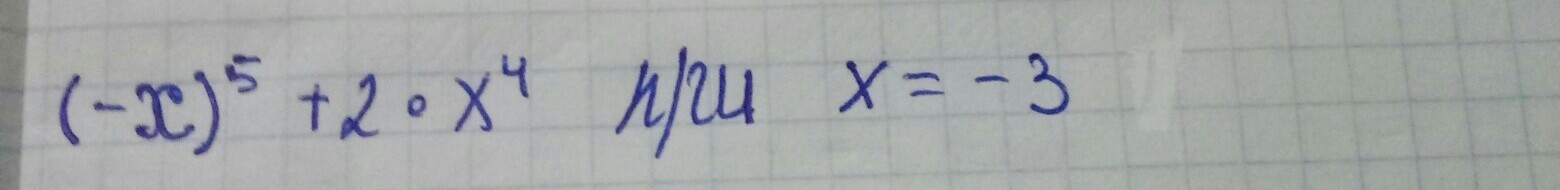 (-x)⁵ + 2 · x⁴ при x = -3